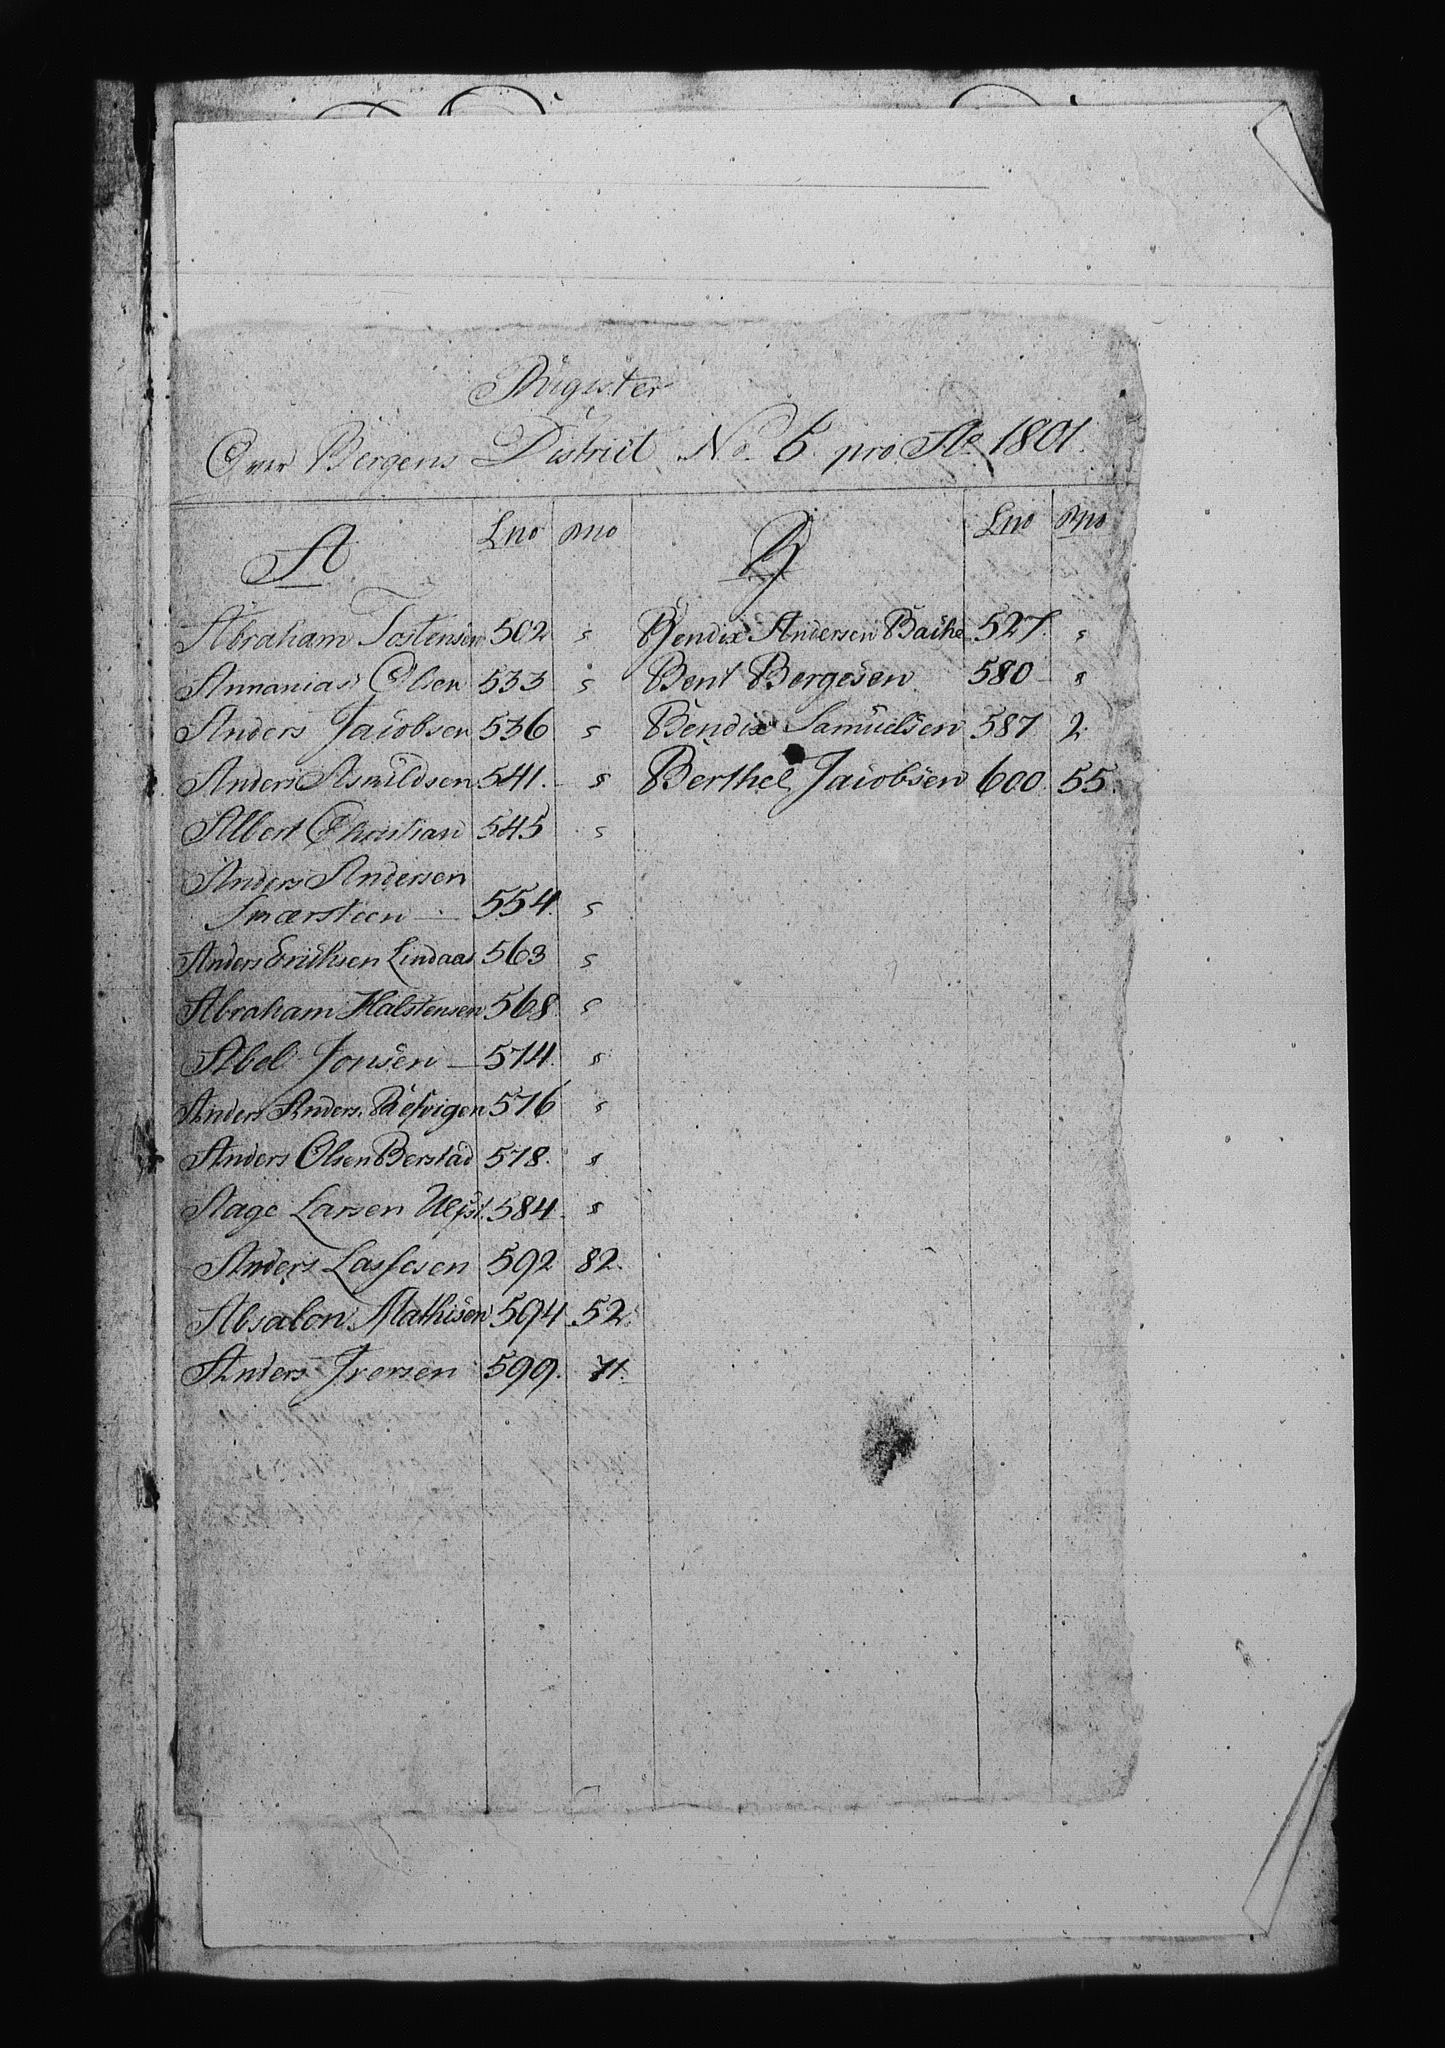 Register
Over Bergens District No. 6. pro Ao. 1801.
A Lno Rno B Lno Rno
Abraham Tostensen 502 s Bendix Andersen Bache 527. s
Annanias Olsen 533 s Bent Borgesen 580 s
Anders Jacobsen 536 s Bendix Samuelsen 587 2
Anders Asmildsen 541. s Berthel Jacobsen 600. 55.
Albert Christian 545 s
Anders Andersen
Smørsteen — 554. s
Anders Erichsen Lindaas 563 s
Abraham Halstensen 568 s
Abel Jonsen — 574. s
Anders Anders. 576 s
Anders Olsen Berstad 578. s
Aage Larsen 584. s
Anders Lassesen 592 82.
Absalon Mathisen 594 52.
Anders Iversen 599. 71.